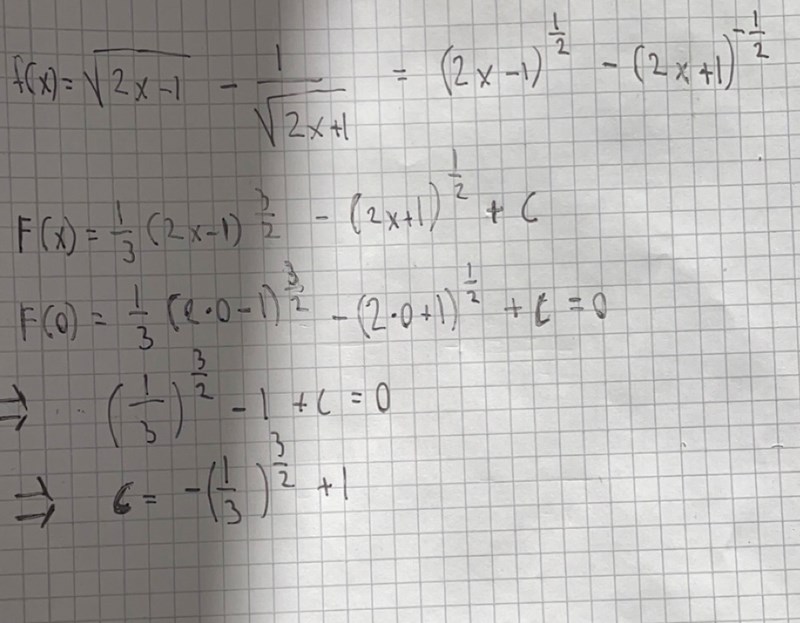 f(x) = √(2x-1) - 1/√(2x+1) = (2x-1)^(1/2) - (2x+1)^(-1/2)
F(x) = 1/3 (2x-1)^(3/2) - (2x+1)^(1/2) + C
F(0) = 1/3 (2·0-1)^(3/2) - (2·0+1)^(1/2) + C = 0
⇒ (1/3)^(3/2) - 1 + C = 0
⇒ C = -(1/3)^(3/2) + 1